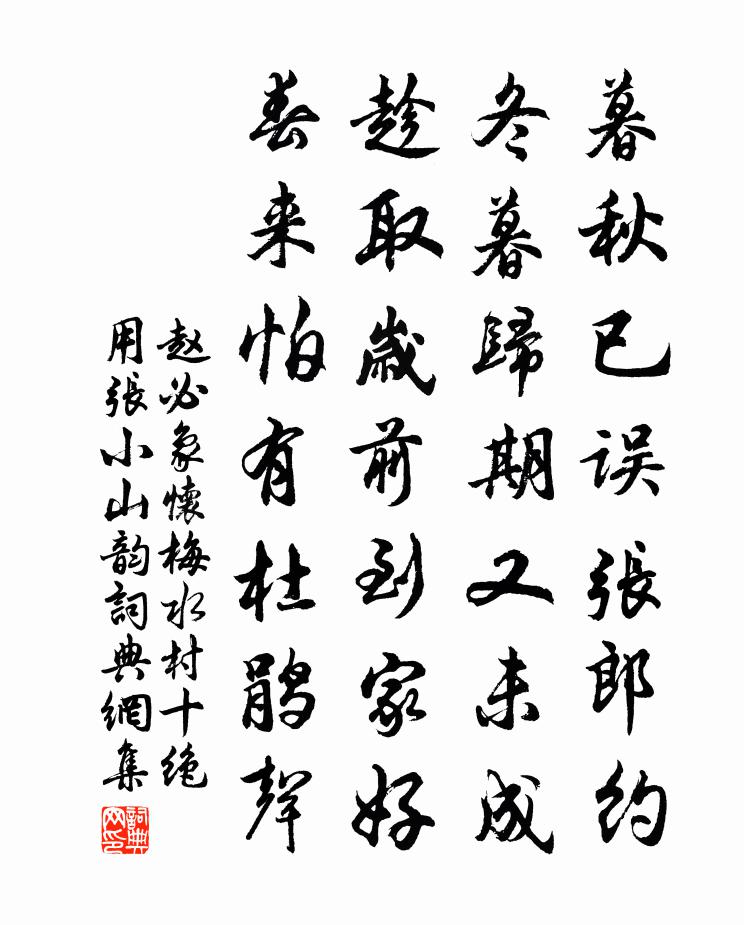 暮秋已误張郎约
冬暮歸期又未成
趁取歲前到家好
春来怕有杜鹃聲
赵必象懷梅水村十绝
用張小山韵詞典網集
詞典
网印